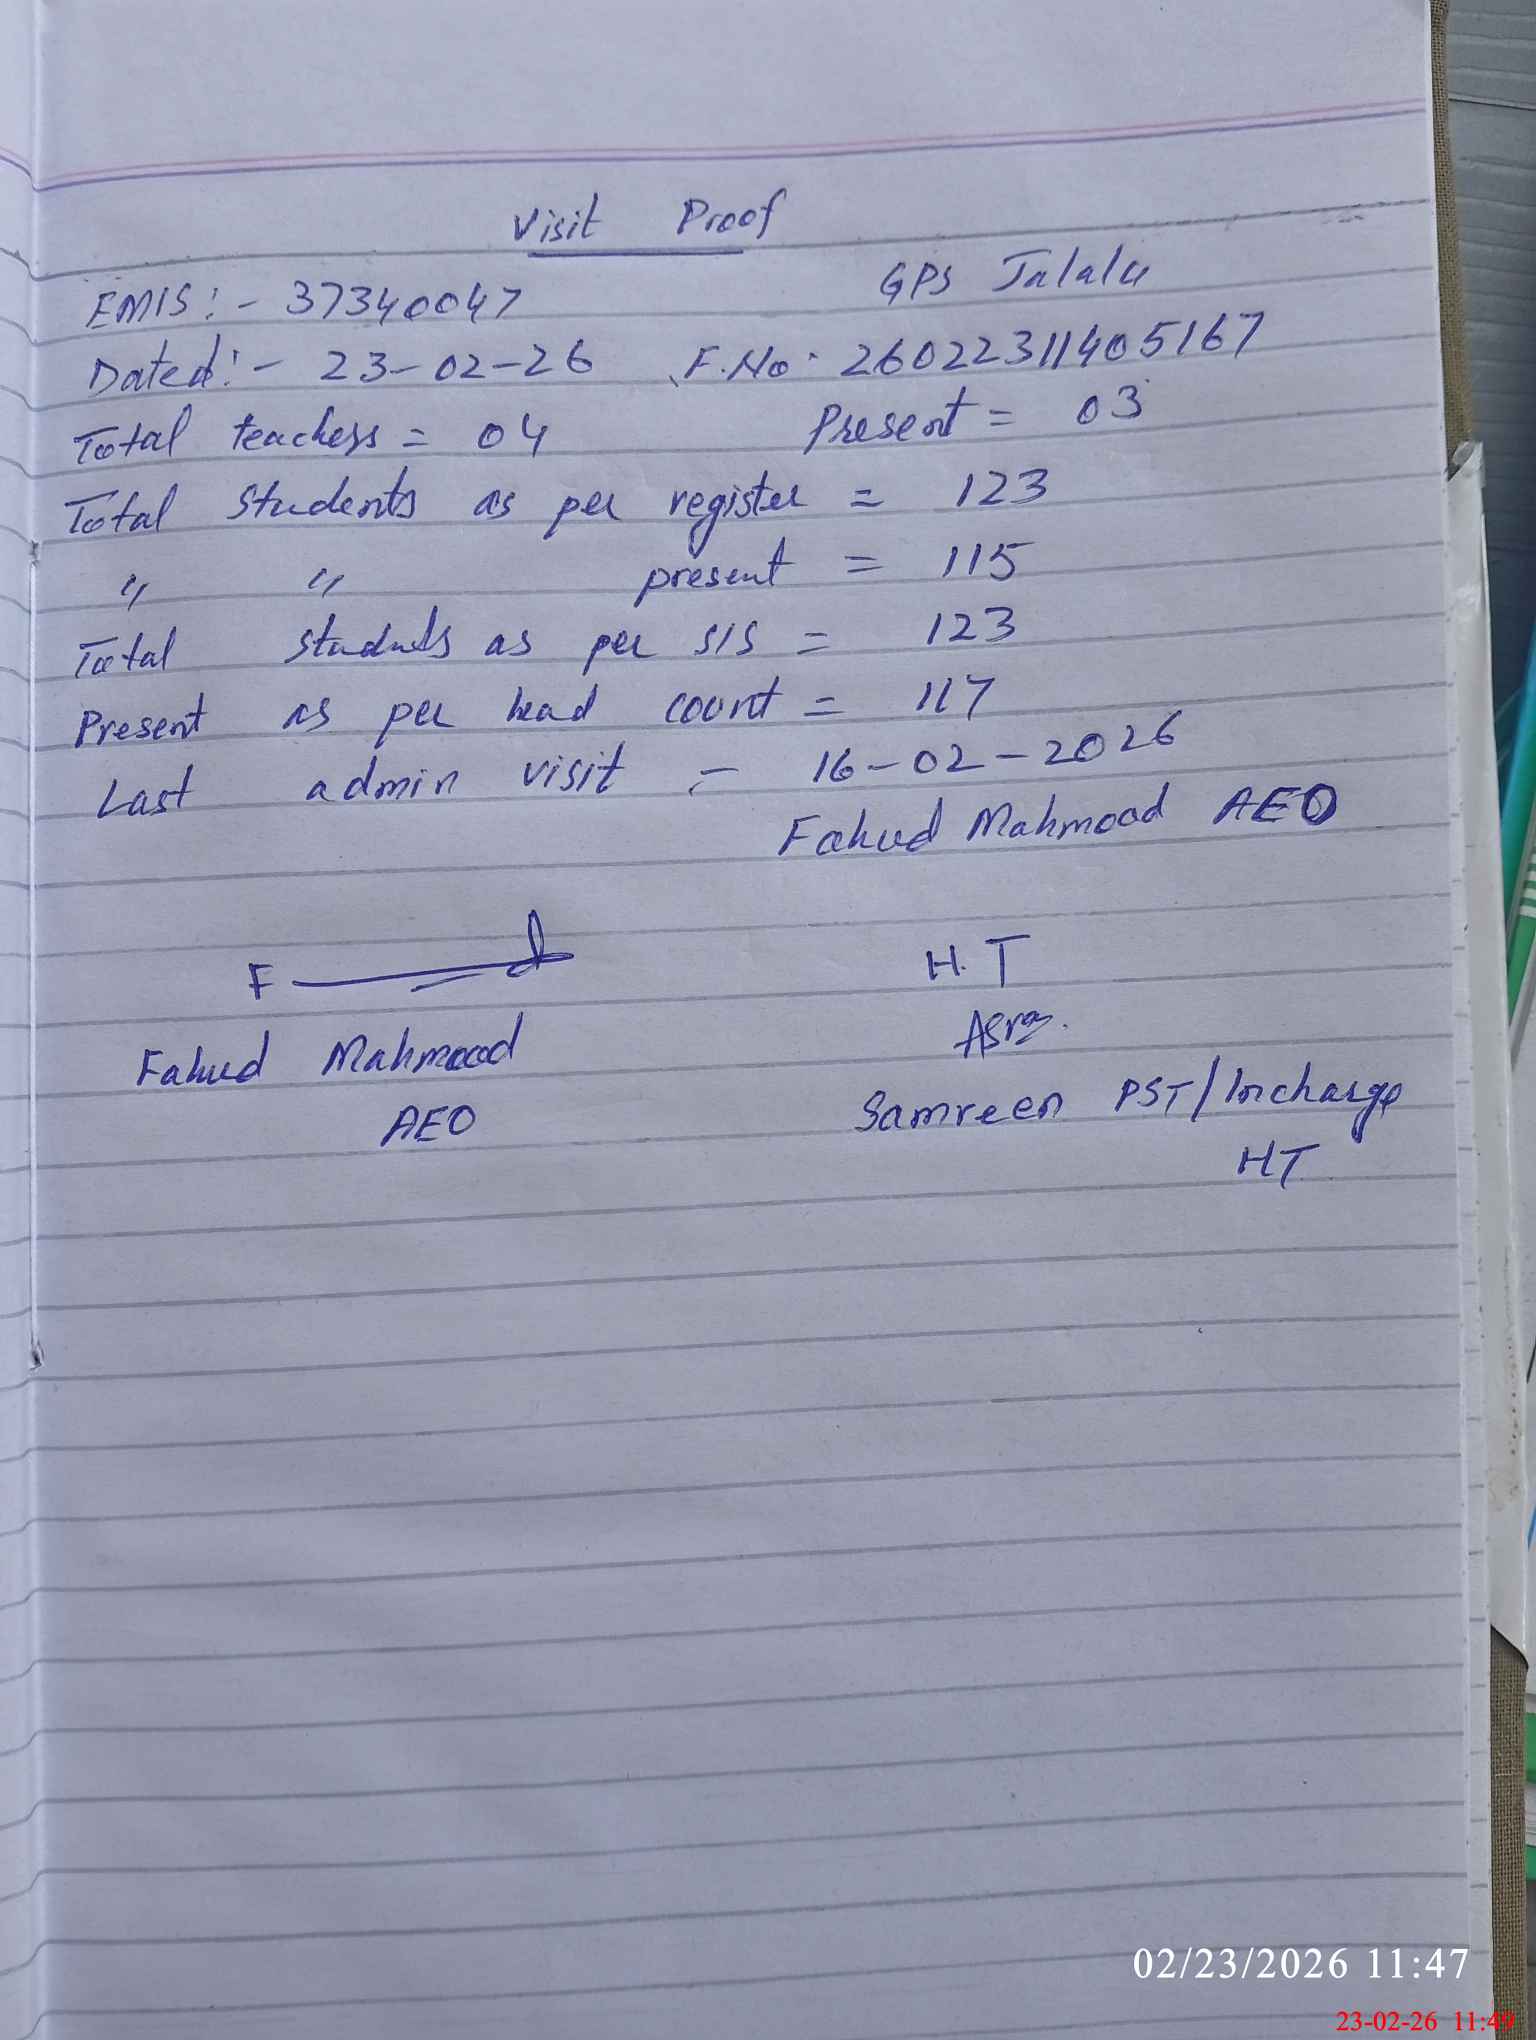 Visit Proof
EMIS:- 37340047 GPS Jalalu
Dated:- 23-02-26 F.No. 26022311405167
Total teachers = 04 Present = 03
Total Students as per register = 123
" " present = 115
Total students as per SIS = 123
Present as per head count = 117
Last admin visit = 16-02-2026
Fahud Mahmood AEO
F
H.T
Fahud Mahmood
AEO
Samreen PST/Incharge
HT
02/23/2026 11:47
23-02-26 11:49